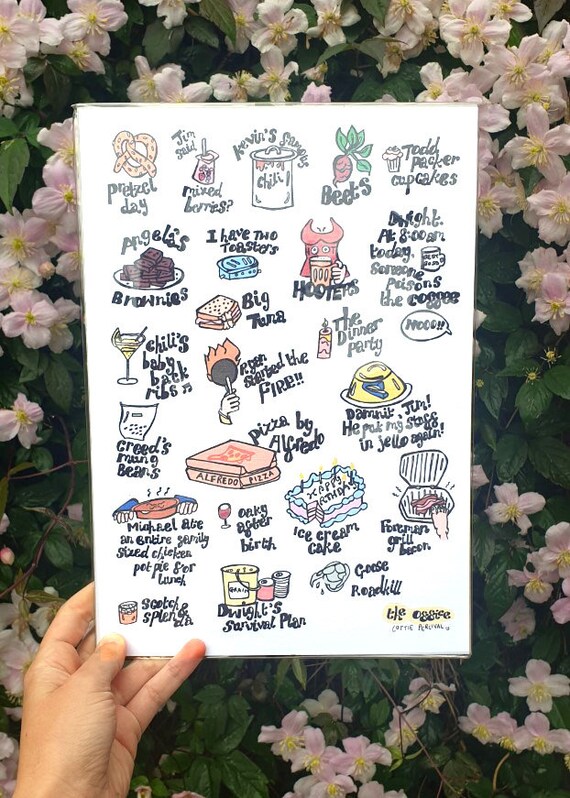 pretzel
day
Jim
said
mixed
berries?
Kevin's famous
chili
Beets
Todd
packer
cupcakes
Angela's
Brownies
I have two
toasters
Hooters
Dwight.
At 8:00am
today,
someone
poisons
the coffee
Best
Boss
Nooo!!
Big
Tuna
The
Dinner
party
chili's
baby
back
ribs ♫
Ryan
started the
fire!!
Damnit, Jim!
He put my stuff
in jello again!
Creed's
mung
Beans
pizza by
Alfredo
ALFREDO PIZZA
Happy
Birthday
ice cream
cake
Foreman
grill
bacon
Michael ate
an entire family
sized chicken
pot pie for
lunch
oaky
after
birth
Scotch &
splenda
GRAIN
Dwight's
Survival Plan
Goose
Roadkill
the office
LOTTIE PERCIVAL